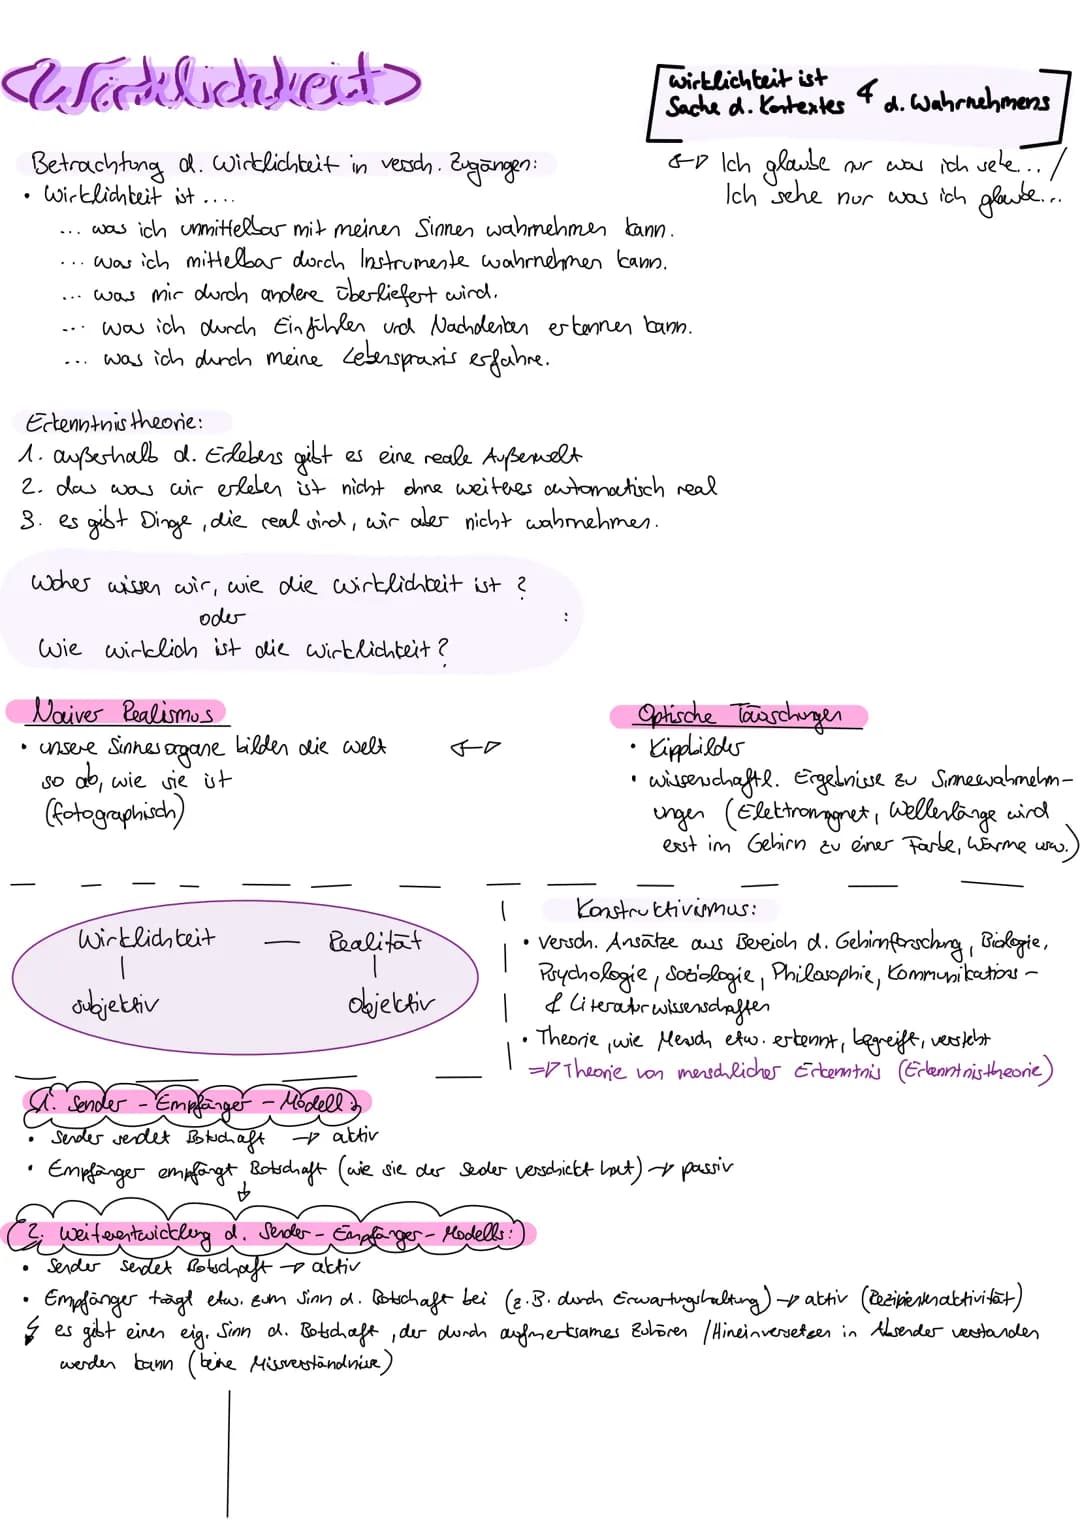 Wirklichkeit
wirklichkeit ist
Sache d. Kontextes & d. Wahrnehmens
Ich glaube nur was ich sehe... /
Ich sehe nur was ich glaube...
Betrachtung d. Wirklichkeit in versch. Zugängen:
• Wirklichkeit ist ....
... was ich unmittelbar mit meinen Sinnen wahrnehmen kann.
... was ich mittelbar durch Instrumente wahrnehmen kann.
... was mir durch andere überliefert wird.
... was ich durch Einfühlen und Nachdenken erkennen kann.
... was ich durch meine Lebenspraxis erfahre.
Erkenntnistheorie:
1. außerhalb d. Erlebens gibt es eine reale Außenwelt
2. das was wir erleben ist nicht ohne weiteres automatisch real
3. es gibt Dinge, die real sind, wir aber nicht wahrnehmen.
Woher wissen wir, wie die Wirklichkeit ist?
oder
:
Wie wirklich ist die Wirklichkeit?
Naiver Realismus
• unsere Sinnesorgane bilden die Welt
so ab, wie sie ist
(fotographisch)
Optische Täuschungen
• Kippbilder
• wissenschaftl. Ergebnisse zu Sinneswahrnehm-
ungen (Elektromagnet, Wellenlänge wird
erst im Gehirn zu einer Farbe, Wärme usw.)
Wirklichkeit — Realität
subjektiv objektiv
Konstruktivismus:
• versch. Ansätze aus Bereich d. Gehirnforschung, Biologie,
Psychologie, Soziologie, Philosophie, Kommunikations-
& Literaturwissenschaften
• Theorie, wie Mensch etw. erkennt, begreift, versteht
=> Theorie von menschlicher Erkenntnis (Erkenntnistheorie)
1. Sender - Empfänger - Modell:
• Sender sendet Botschaft → aktiv
• Empfänger empfängt Botschaft (wie sie der Sender verschickt hat) → passiv
2. Weiterentwicklung d. Sender - Empfänger - Modells:
• Sender sendet Botschaft → aktiv
• Empfänger trägt etw. zum Sinn d. Botschaft bei (z.B. durch Erwartungshaltung) → aktiv (Rezipientenaktivität)
es gibt einen eig. Sinn d. Botschaft, der durch aufmerksames Zuhören / Hineinversetzen in Absender verstanden
werden kann (keine Missverständnisse)